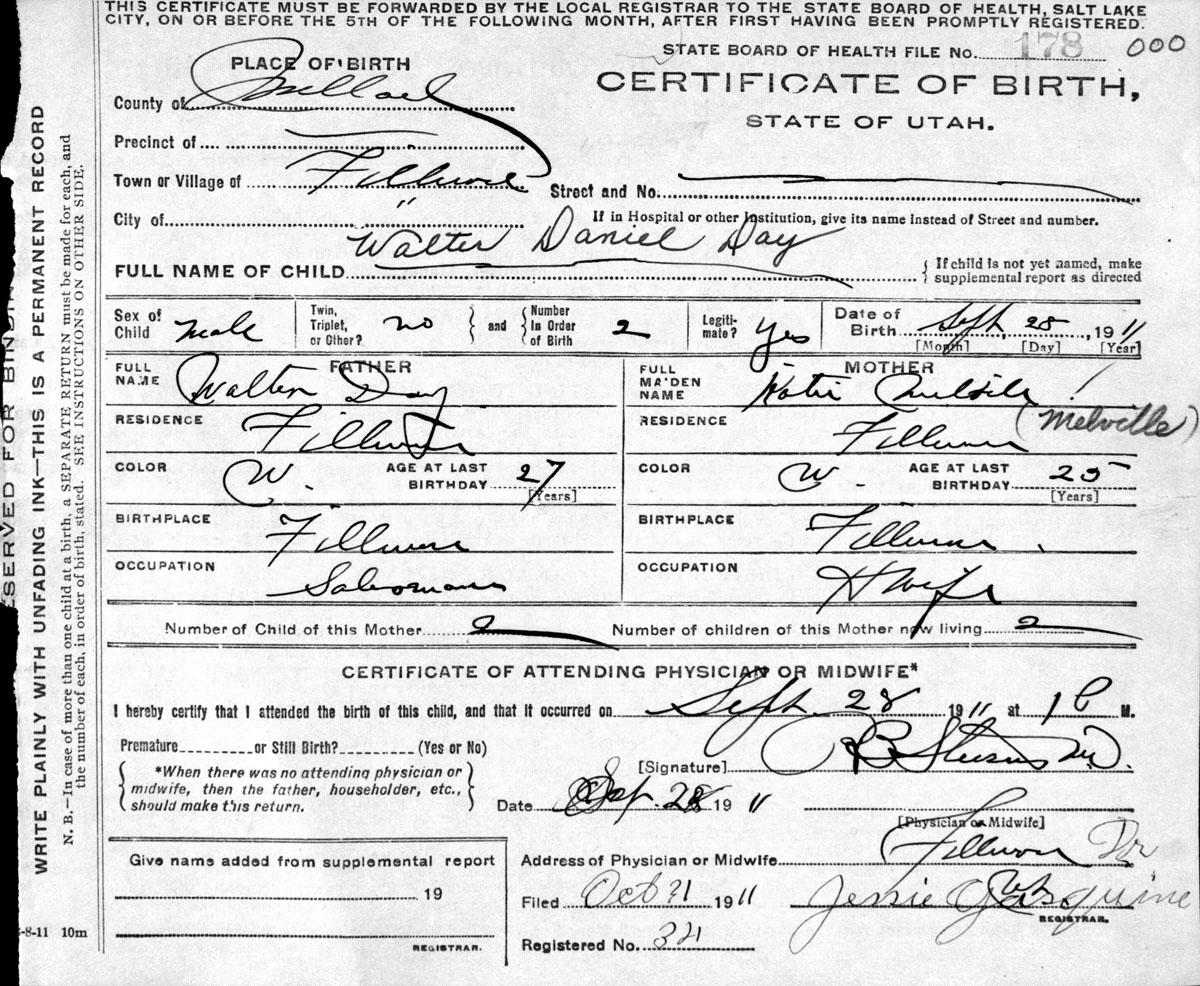 THIS CERTIFICATE MUST BE FORWARDED BY THE LOCAL REGISTRAR TO THE STATE BOARD OF HEALTH, SALT LAKE
CITY, ON OR BEFORE THE 5TH OF THE FOLLOWING MONTH, AFTER FIRST HAVING BEEN PROMPTLY REGISTERED.
STATE BOARD OF HEALTH FILE No. 178 000
PLACE OF BIRTH
CERTIFICATE OF BIRTH,
STATE OF UTAH.
County of Millard
Precinct of
Town or Village of Fillmore Street and No.
City of " If in Hospital or other Institution, give its name instead of Street and number.
FULL NAME OF CHILD Walter Daniel Day { If child is not yet named, make
supplemental report as directed
Sex of Child Male Twin, Triplet, or Other? no } and { Number In Order of Birth 2 Legiti-mate? Yes Date of Birth Sept 28, 1911
[Month] [Day] [Year]
FATHER MOTHER
FULL NAME Walter Day FULL MAIDEN NAME Katie
(Melville)
RESIDENCE Fillmore RESIDENCE Fillmore
COLOR W. AGE AT LAST BIRTHDAY 27 [Years] COLOR W. AGE AT LAST BIRTHDAY 25 [Years]
BIRTHPLACE Fillmore BIRTHPLACE Fillmore.
OCCUPATION Salesman OCCUPATION H Wife
Number of Child of this Mother 2 Number of children of this Mother now living 2
CERTIFICATE OF ATTENDING PHYSICIAN OR MIDWIFE*
I hereby certify that I attended the birth of this child, and that it occurred on Sept 28 1911 at 1 P M.
Premature or Still Birth? (Yes or No)
[Signature]
{ *When there was no attending physician or
midwife, then the father, householder, etc.,
should make this return. }
Date Sep. 28 19 11
[Physician or Midwife]
Give name added from supplemental report
19
REGISTRAR.
Address of Physician or Midwife Fillmore
Filed Oct 21 1911 Jessie
REGISTRAR.
Registered No. 34
-8-11 10m
ESERVED FOR BINDIN
WRITE PLAINLY WITH UNFADING INK—THIS IS A PERMANENT RECORD
N. B.—In case of more than one child at a birth, a SEPARATE RETURN must be made for each, and
the number of each, in order of birth, stated. SEE INSTRUCTIONS ON OTHER SIDE.